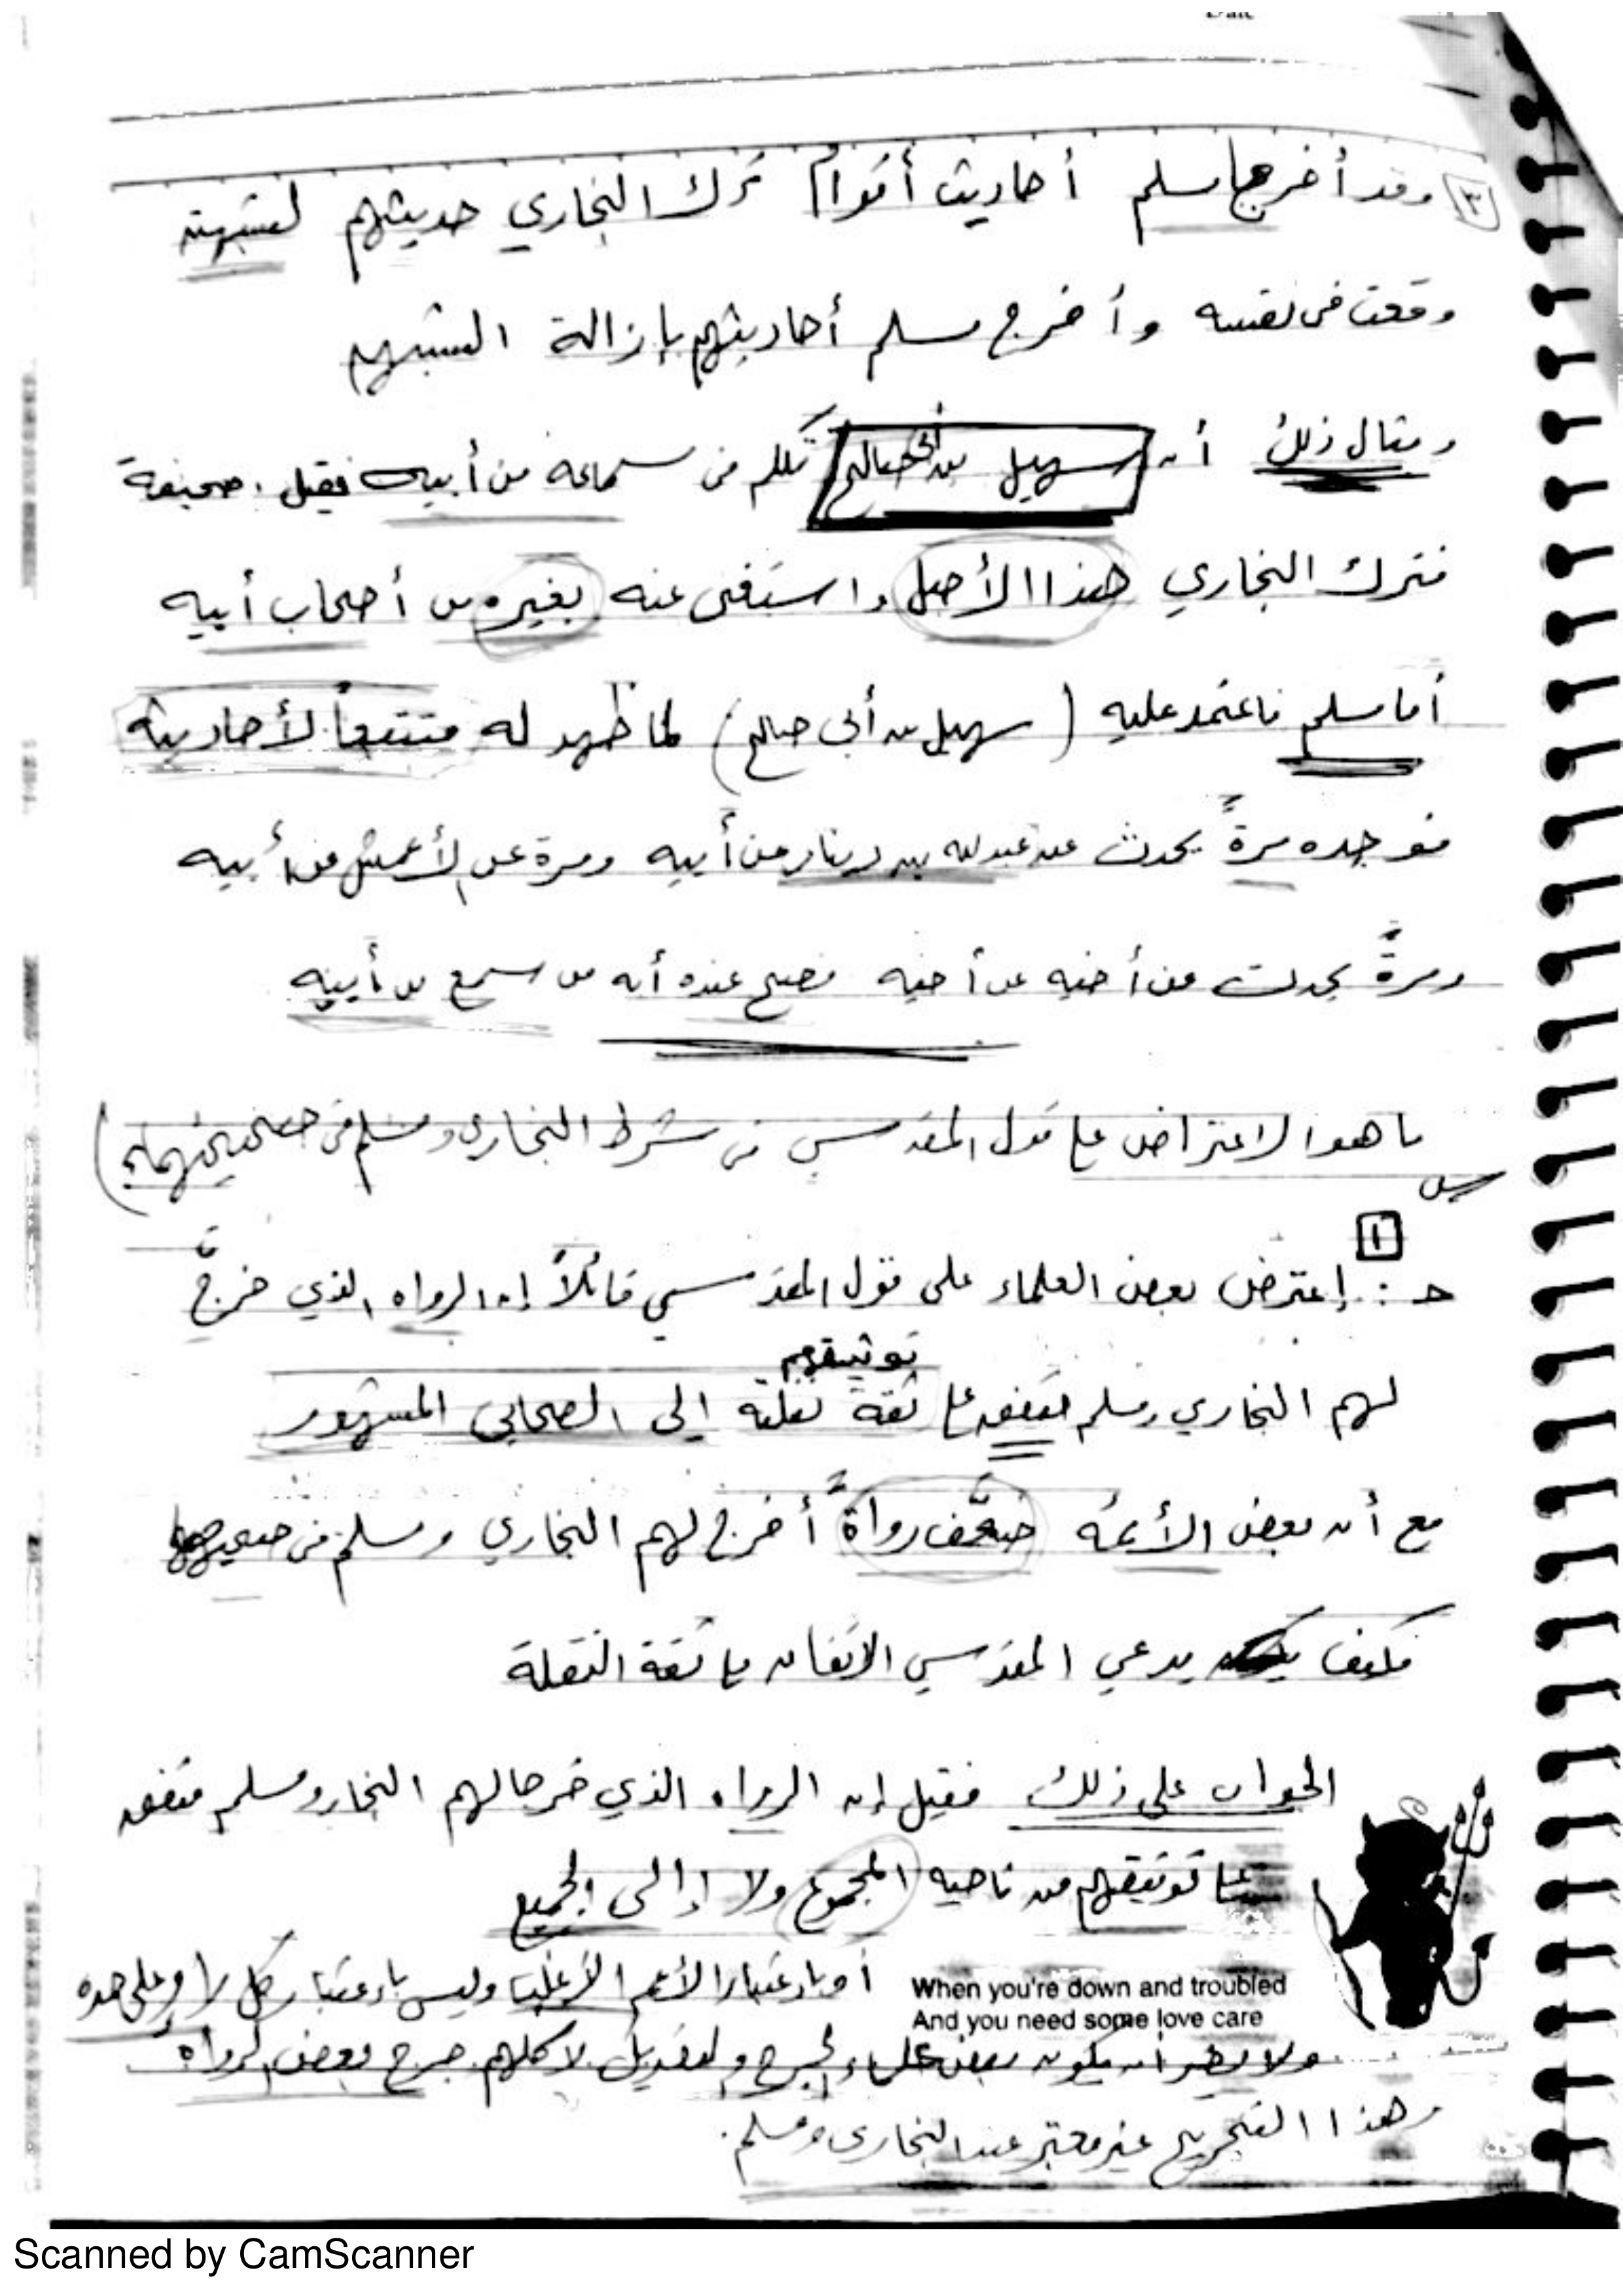 ٣ وقد أخرج مسلم أحاديث أقوام ترك البخاري حديثهم لشبهة
وقعت في نفسه وأخرج مسلم أحاديثهم بإزالة الشبهه
ومثال ذلك أن سهيل بن أبي صالح تكلم في سماعه من أبيه فقيل صحيفة
فترك البخاري هذا الأصل واستغنى عنه بغيره من أصحاب أبيه
أما مسلم فاعتمد عليه (سهيل بن أبي صالح) لما ظهر له متتبعاً لأحاديثه
فوجده مرةً يحدث عن عبدلله بن دينار عن أبيه ومرة عن الأعمش عن أبيه
ومرةً يحدث عن أخيه عن أخيه فصح عنده أنه من سمع من أبيه
س ما هو الاعتراض على قول المقدسي في شرط البخاري ومسلم في صحيحيهما؟
١
حـ: إعترض بعض العلماء على قول المقدسي قائلاً إن الرواه الذي خرج
توثيقهم
لهم البخاري ومسلم متفق على ثقة نقلة إلى الصحابي المشهور
مع أن بعض الأئمه ضعَّف رواةً أخرج لهم البخاري ومسلم في صحيحهما
فكيف يدعي المقدسي الاتفاق على ثقة النقلة
الجواب على ذلك فقيل إن الرواه الذي خرجا لهم البخار ومسلم متفق
على توثيقهم من ناحيه المجموع ولا إلى الجميع
أو باعتبار الأعم الأغلب وليس باعتبار كل راو على حده
When you're down and troubled
And you need some love care
ولا يضر أن يكون بعض علماء الجرح والتعديل لا كلهم جرح بعض الرواة
وهذا التجريح غير معتبر عند البخاري ومسلم.
Scanned by CamScanner